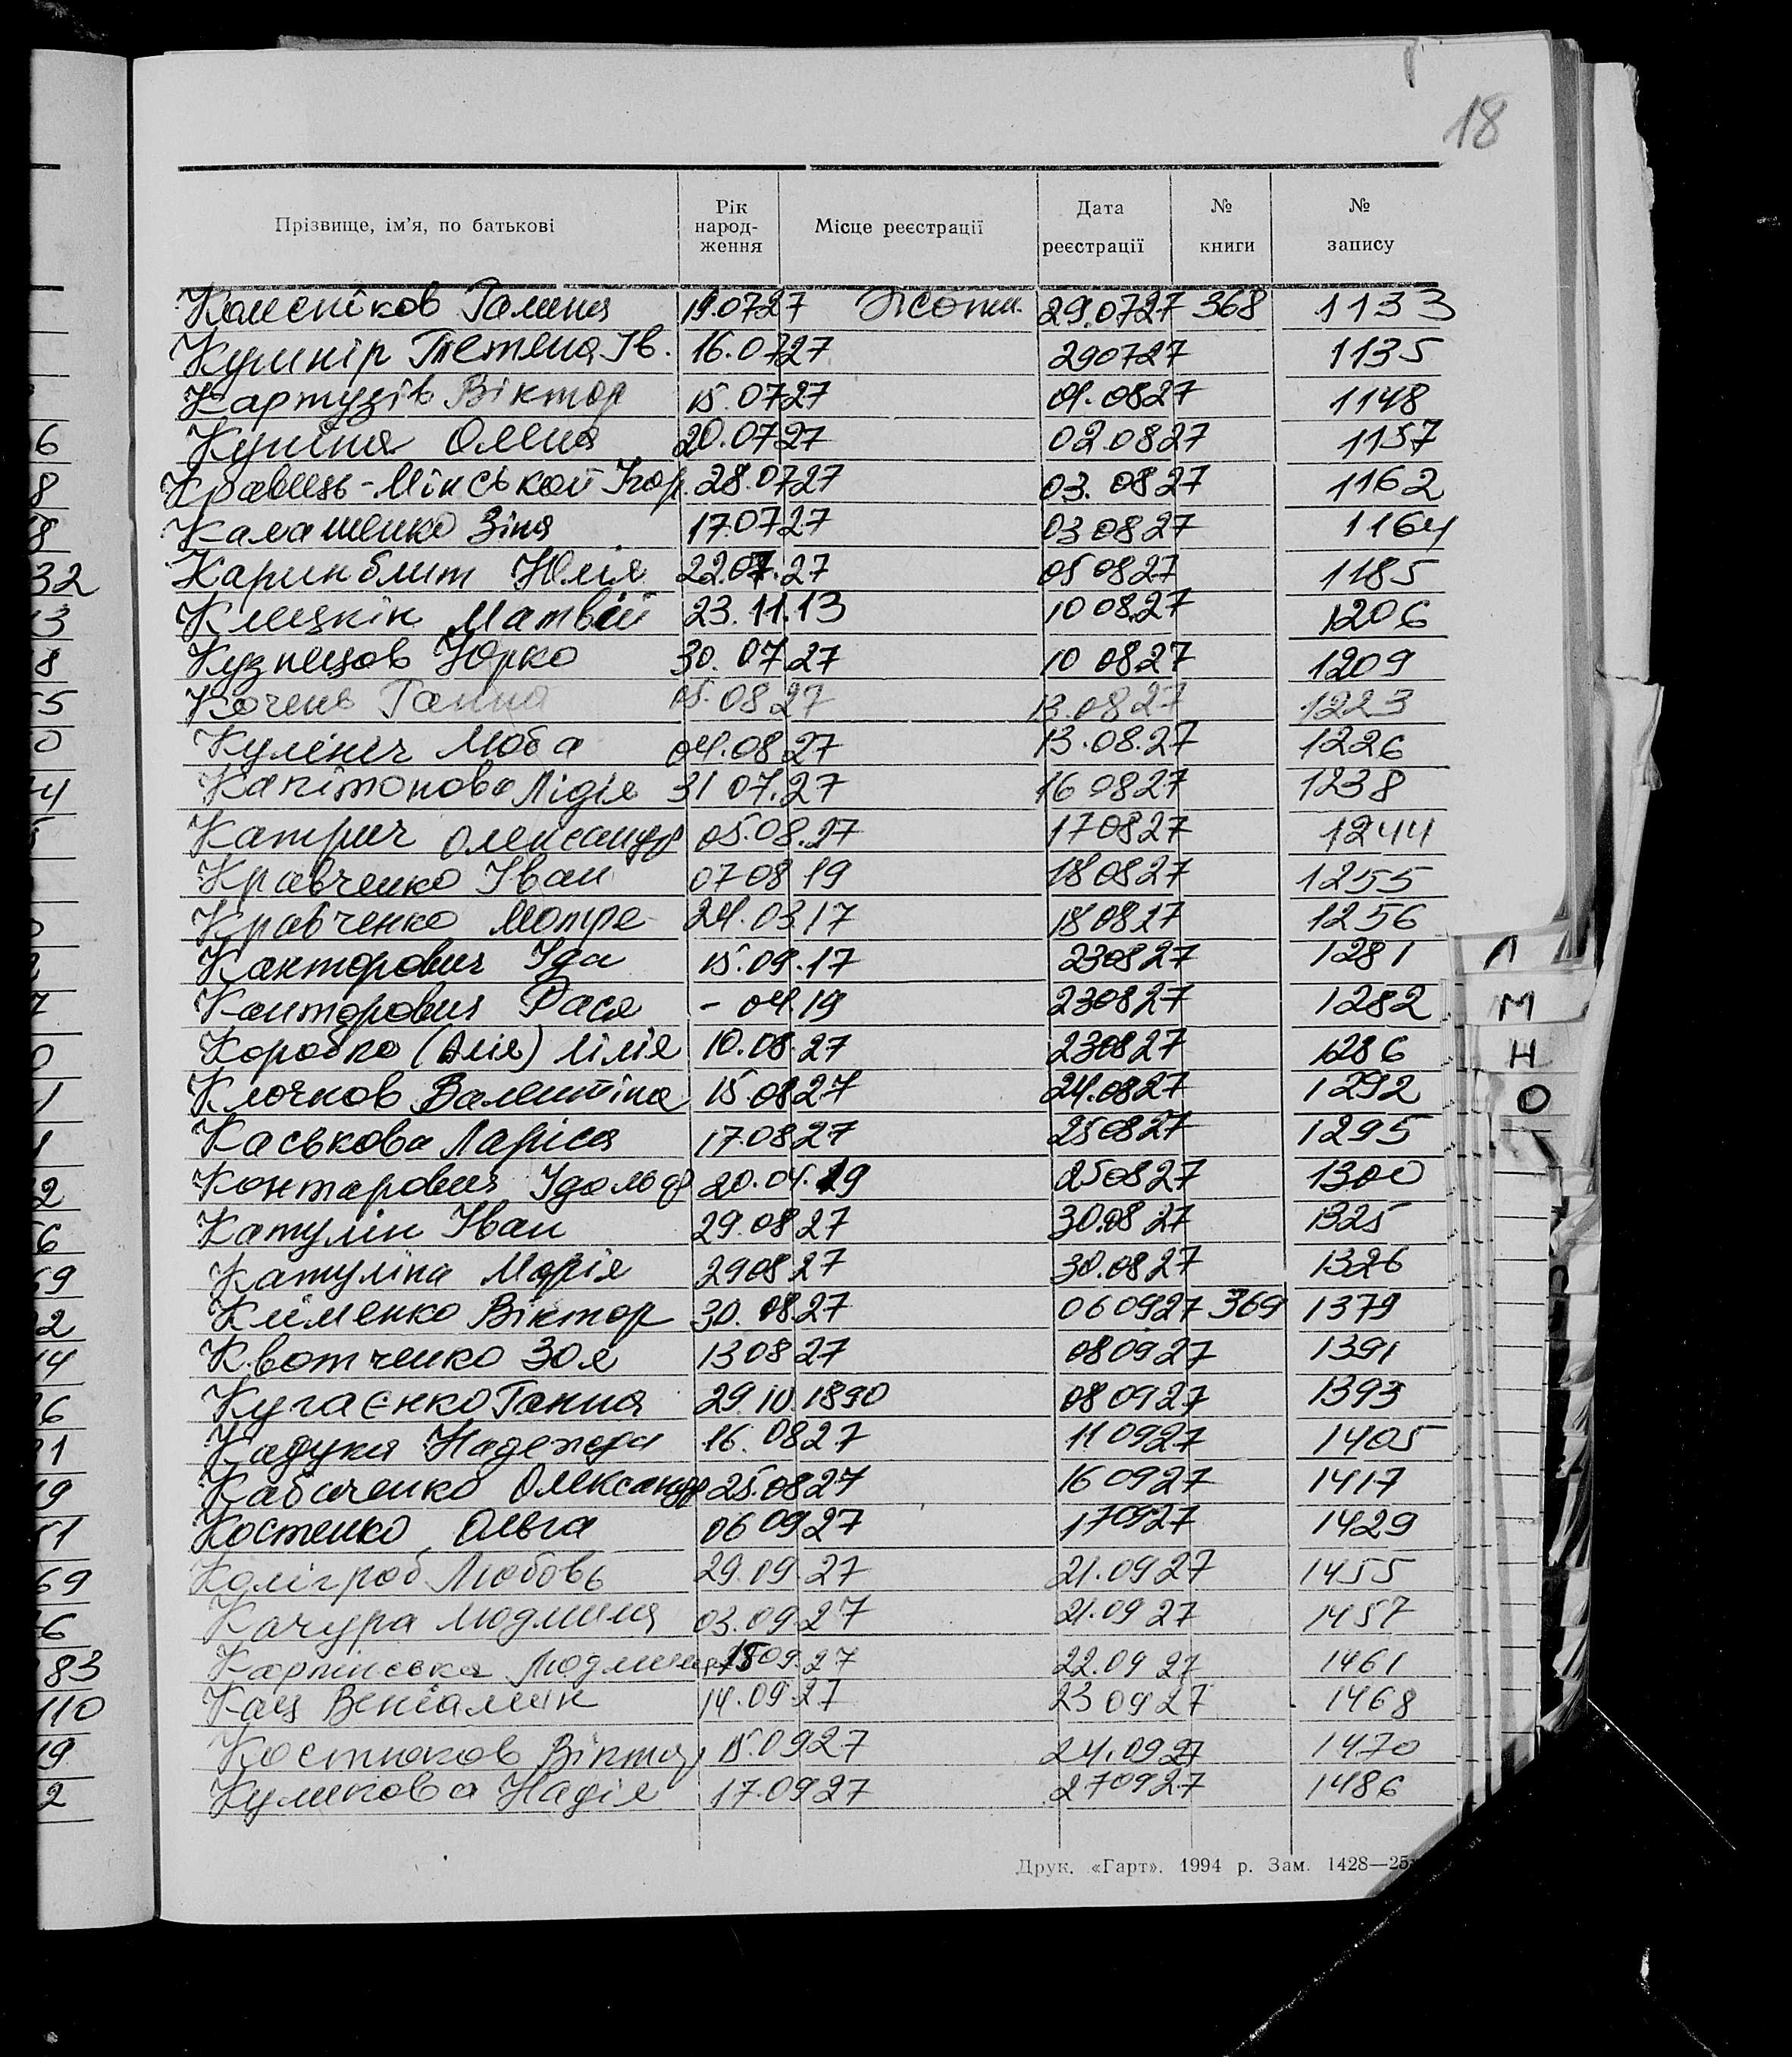 18
Прізвище, ім'я, по батькові Рік народ- ження Місце реєстрації Дата реєстрації № книги № запису
Колєсніков Галина 19.0727 29.0727 368 1133
Кушнір Тетяна Ів. 16.0727 290727 1135
Картузів Віктор 15.0727 01.0827 1148
Купіна Олена 20.0727 02.0827 1157
Кравець-Мінський Ігор. 28.0727 03.0827 1162
Калашенко Зіна 17.0727 030827 1164
Каринблит Юлія 22.07.27 050827 1185
Клецкін Матвій 23.11.13 100827 1206
Кузнецов Юрко 30.07.27 10 0827 1209
Кочень Ганна 05.08 27 13.0827 1223
Кулініч Люба 04.08.27 13.08.27 1226
Капітонова Лідія 31 07.27 16 0827 1238
Катрич Олександр 05.08.27 170827 1244
Кравченко Іван 07 08 19 180827 1255
Кравченко Мотря 24.03.17 180827 1256
Канторович Іда 15.09.17 230827 1281
Канторович Рася - 04.19 230827 1282
Коробко (Алія) Лілія 10.08.27 230827 1286
Клочков Валентіна 15.0827 24.0827 1292
Каськова Ларіса 170827 250827 1295
Контарович 20.04.19 250827 1300
Катулін Іван 29.0827 30.0827 1325
Катуліна Марія 290827 30.0827 1326
Кліменко Віктор 30.0827 060927 369 1379
Квотченко Зоя 130827 080927 1391
Кугаєнко Ганна 29.10.1890 080927 1393
Кадука Надежда 16.0827 110927 1405
Кабаченко Олександр 25.0827 160927 1417
Костенко Ольга 060927 170927 1429
Коліґроб Любовь 29.09.27 21.0927 1455
Качура Людмила 03.09.27 21.09 27 1457
Карпінська Людмила 1509.27 22.09 27 1461
Кац Веніамин 14.09.27 230927 1468
Костюков Віктор 15.0927 24.0927 1470
Куликова Надія 17.0927 270927 1486
Друк. «Гарт». 1994 р. Зам. 1428—25
Л
М
Н
О